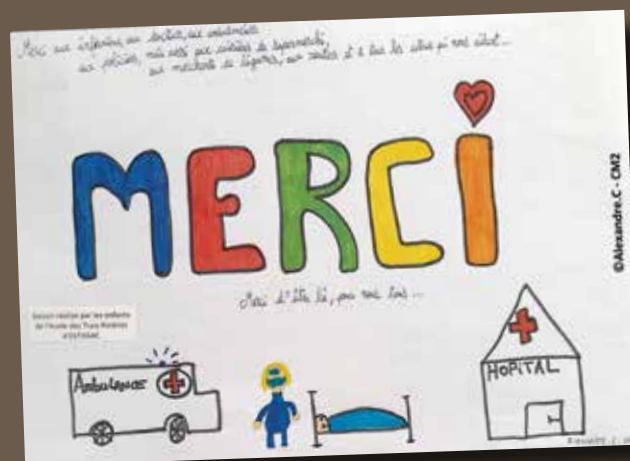 Merci aux infirmiers, aux docteurs, aux ambulanciers
aux policiers, mais aussi aux caissières de supermarché,
aux marchands de légumes, aux routiers et à tous les autres qui nous aident...
MERCI
Merci d'être là, pour nous tous...
Dessin réalisé par les enfants
de l'école des Trois Rivières
d'ESTISSAC
AmbuLANCE
HOPITAL
©Alexandre.C - CM2